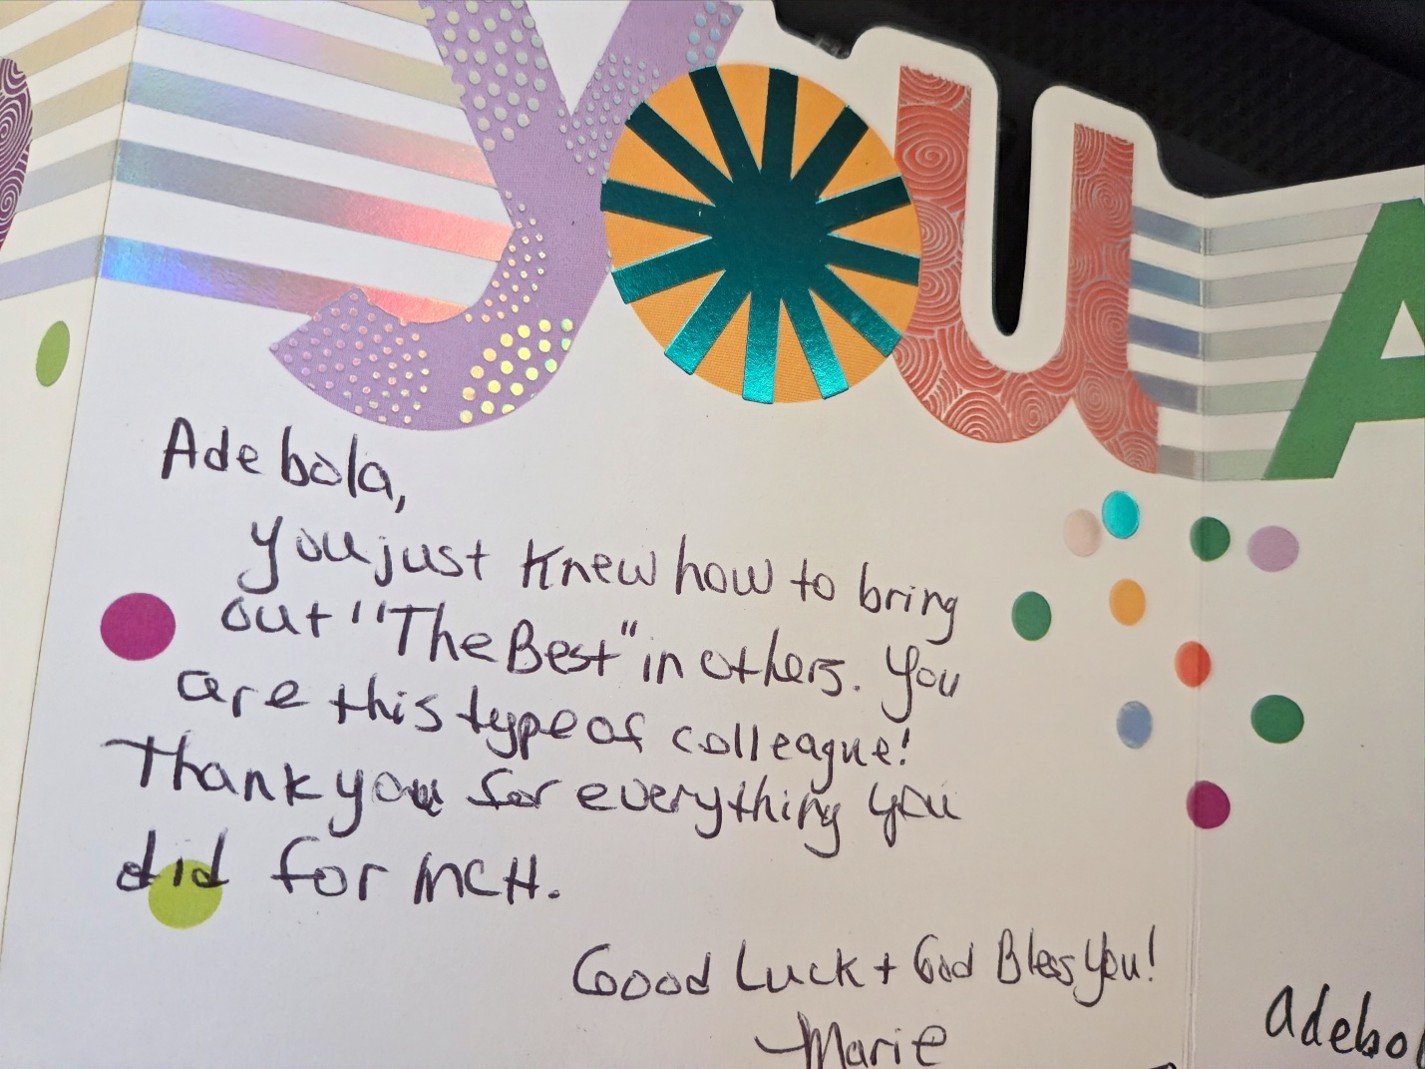 you A
Adebola,
you just knew how to bring
out "The Best" in others. You
are this type of colleague!
Thank you for everything you
did for MCH.
Good Luck + God Bless You!
—Marie
adebol